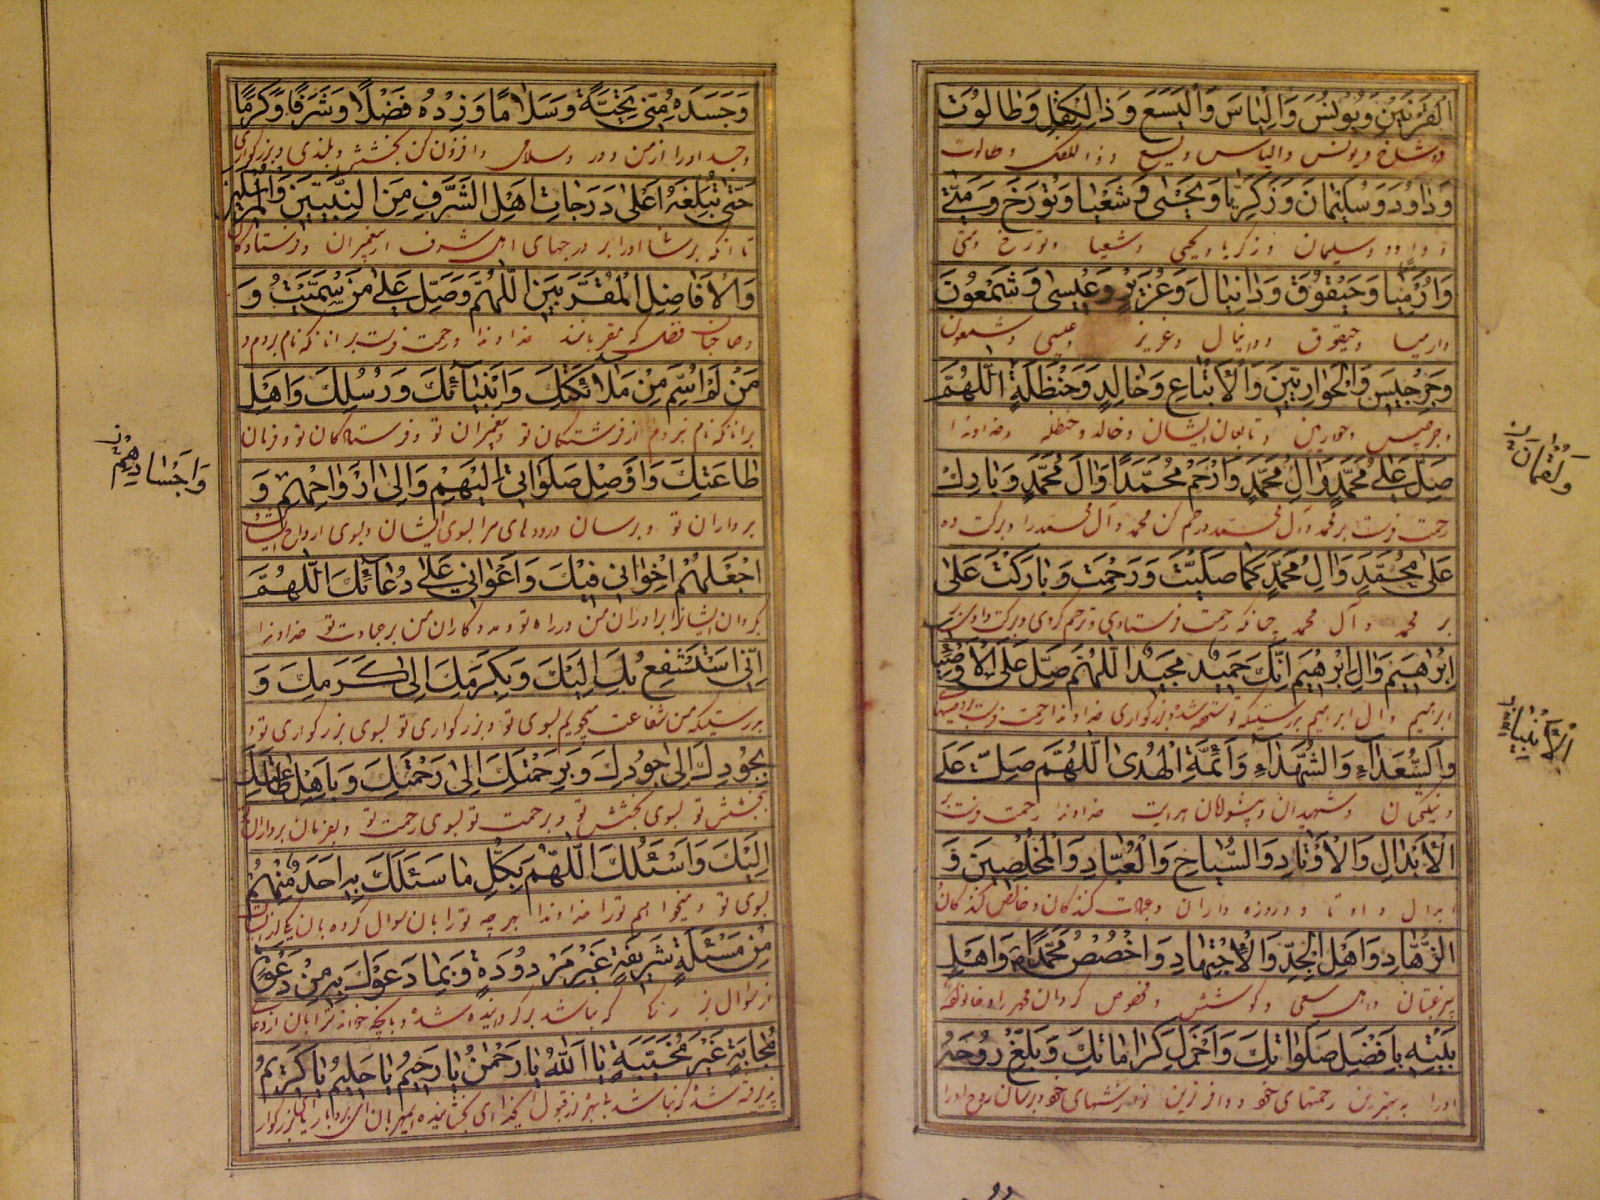 القرنين ويونس والياس واليسع وذا الكفل وطالوت
ذو شاخ ويونس والياس ويسع وذو الكفل وطالوت
وداود وسليمان وزكريا ويحيى وشعيا وتورخ ومتى
وداود وسليمان وزكريا ويحيى وشعيا وتورخ ومتى
وارميا وحيقوق ودانيال وعزير وعيسى وشمعون
وارميا وحيقوق ودانيال وعزير وعيسى وشمعون
وجرجيس والحواريين والأتباع وخالد وحنظلة اللهم
وجرجيس وحواريين وتابعان ايشان وخالد وحنظله وخداوندا
صل على محمد وال محمد وارحم محمدا وال محمد وبارك
رحمت فرست بر محمد وآل محمد ورحم كن محمد وآل محمد را وبركت ده
على محمد وال محمد كما صليت ورحمت وباركت على
بر محمد وآل محمد چنانكه رحمت فرستادى وترحم كردى وبركت دادى بر
ابرهيم وال ابرهيم انك حميد مجيد اللهم صل على الاوصياء
ابرهيم وال ابرهيم بدرستيكه تو ستوده شده وبزركوارى خداوندا رحمت فرست بر
والسعداء والشهداء وأئمة الهدى اللهم صل على
ونيكبختان وشهيدان وپيشوايان هدايت خداوندا رحمت فرست بر
الأبدال والاوتاد والسياح والعباد والمخلصين و
ابدال واوتاد وروزه داران وعبادت كنندكان وخالص كنندكان
الزهاد واهل الجد والأجتهاد واخصص محمدا واهل
واهل سعى وكوشش ومخصوص كردان محمد را واهل
بيته بأفضل صلواتك واجزل كراماتك وبلغ روحه
اورا به بهترين رحمتهاى خود وبرسان روح اورا
ولقمان
الأنبياء
وجسده منى تحية وسلاما وزده فضلا وشرفا وكرما
وجسد اورا از من درود وسلامى وافزون كن بخشش وبلندى وبزركوارى
حتى تبلغه اعلى درجات اهل الشرف من النبيين والمرسلين
تا انكه برسانى اورا بر درجهاى اهل شرف از پيغمبران وفرستادكان
والافاضل المقربين اللهم وصل على من سميت و
وصاحبان فضل كه مقربانند خداوندا ورحمت فرست بر انانكه نام بردم و
من لم اسم من ملائكتك وانبيائك ورسلك واهل
برانانكه نام نبردم از فرشتكان تو وپيغمبران تو وفرستادكان تو وفرمان
طاعتك واوصل صلواتي اليهم والى ارواحهم و
برداران تو وبرسان درودهاى مرا بسوى ايشان وبسوى ارواح ايشان
اجعلهم اخواني فيك واعواني على دعائك اللهم
بكردان ايشانرا برادران من در راه تو ومددكاران من بر عبادت تو خداوندا
انى استشفع بك اليك وبكرمك الى كرمك و
بدرستيكه من شفاعت ميجويم بسوى تو وبزركوارى تو بسوى بزركوارى تو و
بجودك الى جودك وبرحمتك الى رحمتك وباهل طاعتك
بخشش تو بسوى بخشش تو وبرحمت تو بسوى رحمت تو وبفرمان برداران
اليك واسئلك اللهم بكل ما سئلك به احد منهم
بسوى تو وميخواهم تورا خداوندا بهر چه تورا بان سوال كرده يكى از ايشان
من مسئلة شريفة غير مردودة وبما دعوك به من دعوة
از سؤال كه نباشد بركردانيده شده وبانچه خوانده تورا بان از دعا
مجابة غير مخيبة يا الله يا رحمن يا رحيم يا حليم يا كريم
واجسادهم